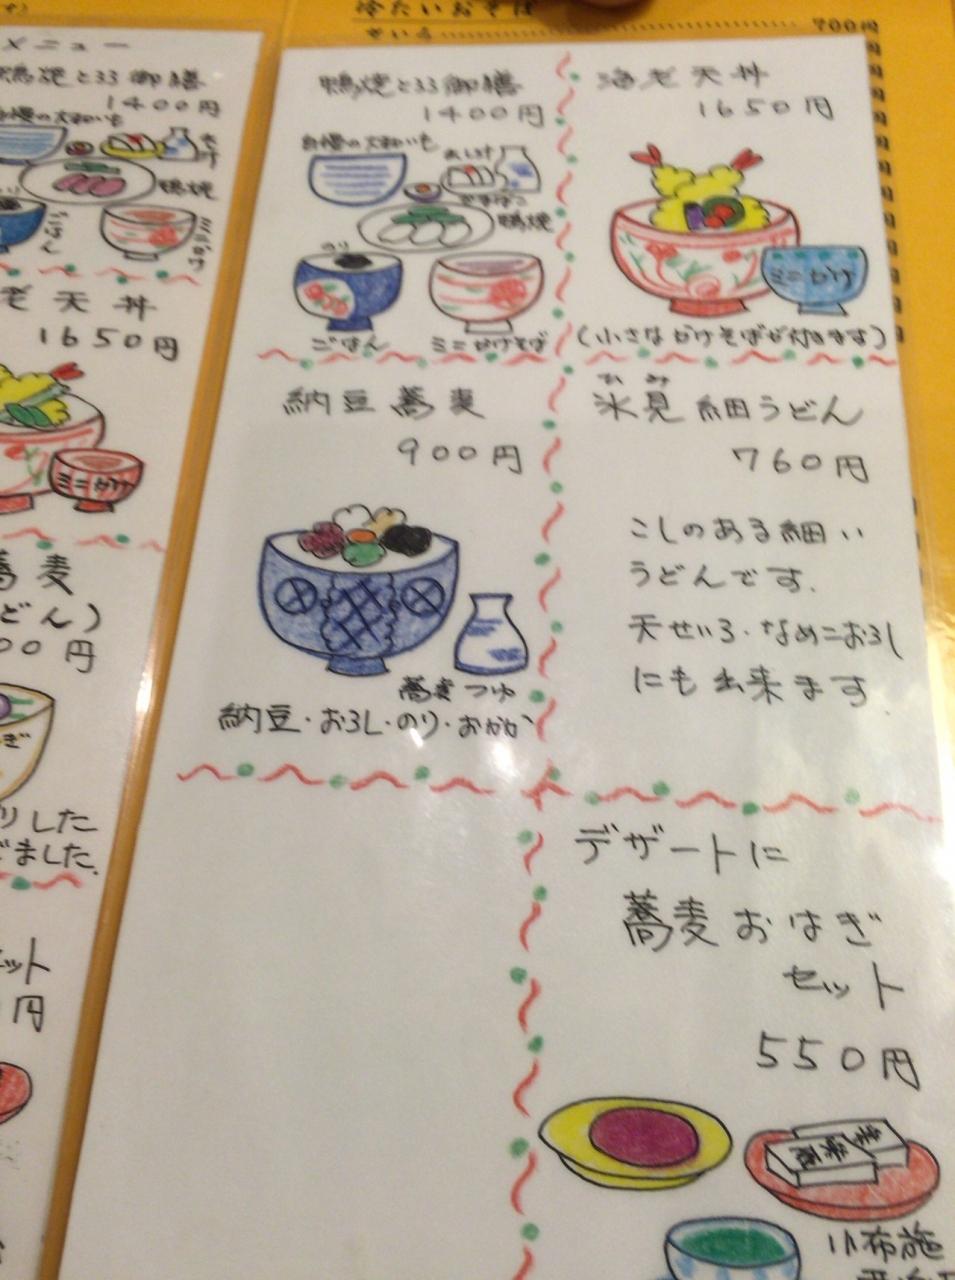 冷たいおそば
せいろ 700円
メニュー
鴨焼ととろ御膳
1400円
鴨焼
ごはん
ミニかけ
老天丼
1650円
ミニかけ
蕎麦
どん)
00円
りした
ました。
ット
円
鴨焼ととろ御膳
1400円
自慢の
鴨焼
のり
ごはん
ミニかけそば
海老天丼
1650円
ミニかけ
(小さなかけそばが付きます)
納豆蕎麦
900円
蕎麦つゆ
納豆・おろし・のり・おかか
ひみ
氷見細うどん
760円
こしのある細い
うどんです.
天せいろ・なめこおろし
にも出来ます
デザートに
蕎麦おはぎ
セット
550円
小布施